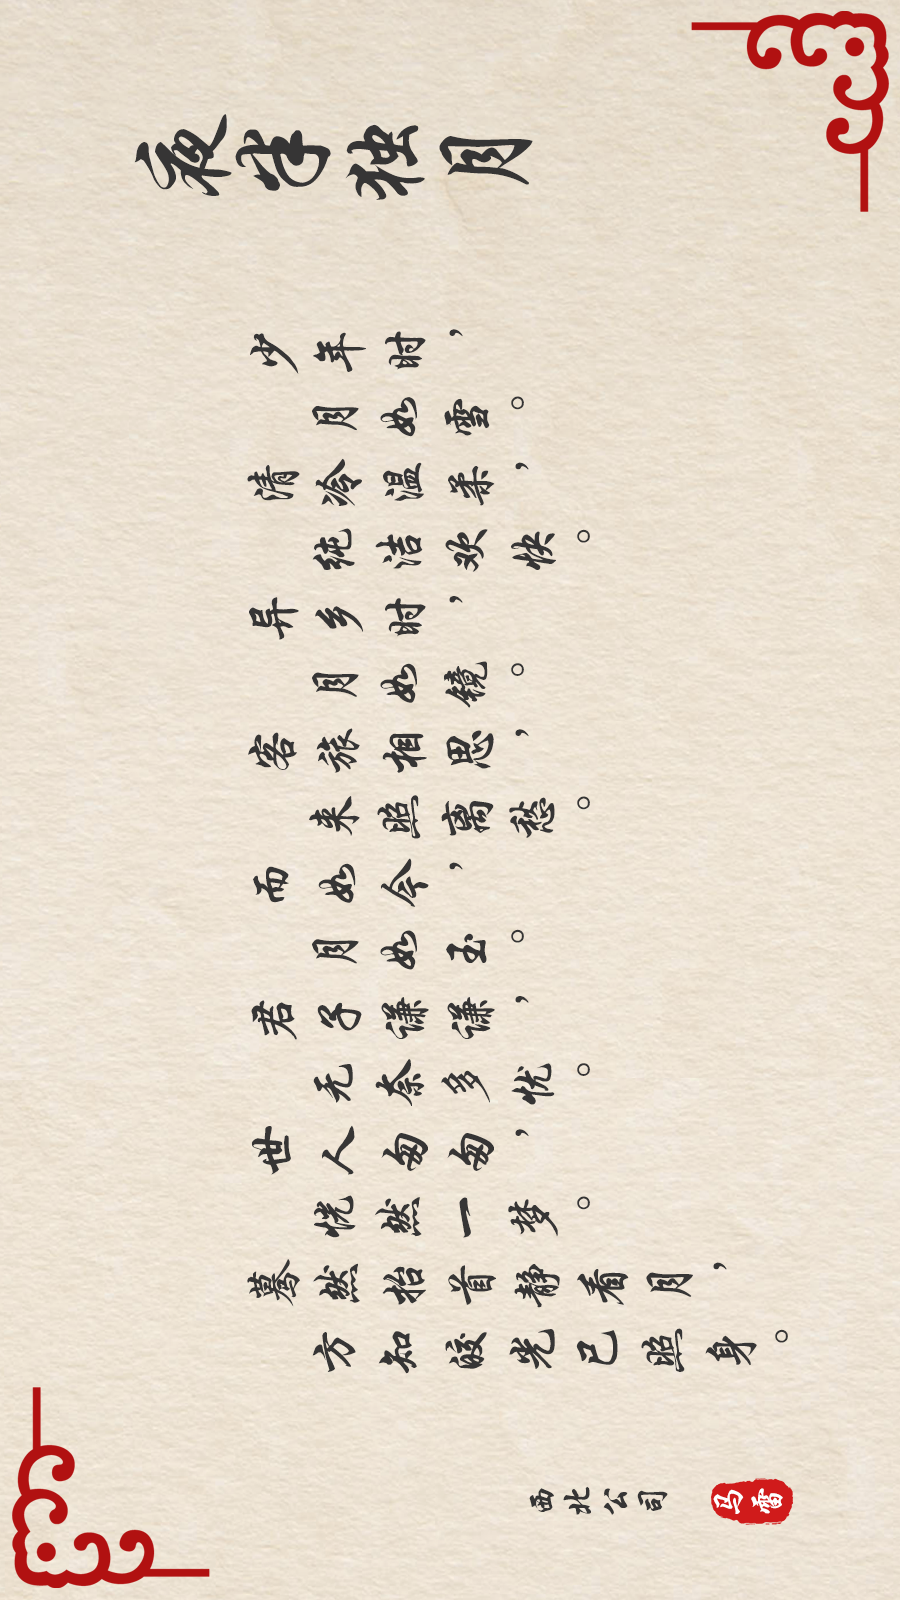 夜独月
少年时，
月如雪。
清冷温柔，
纯洁欢快。
异乡时，
月如镜。
客旅相思，
来照离愁。
而如今，
月如玉。
君子谦谦，
无奈多忧。
世人匆匆，
恍然一梦。
蓦然抬首静看月，
方知皎光已照身。
西北公司
马雷